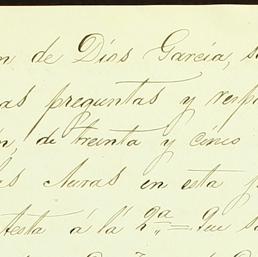 n de Dios Garcia, s
as preguntas y resp
n, de treinta y cinco
as Auras en esta p
testa á la 2ª = Que s